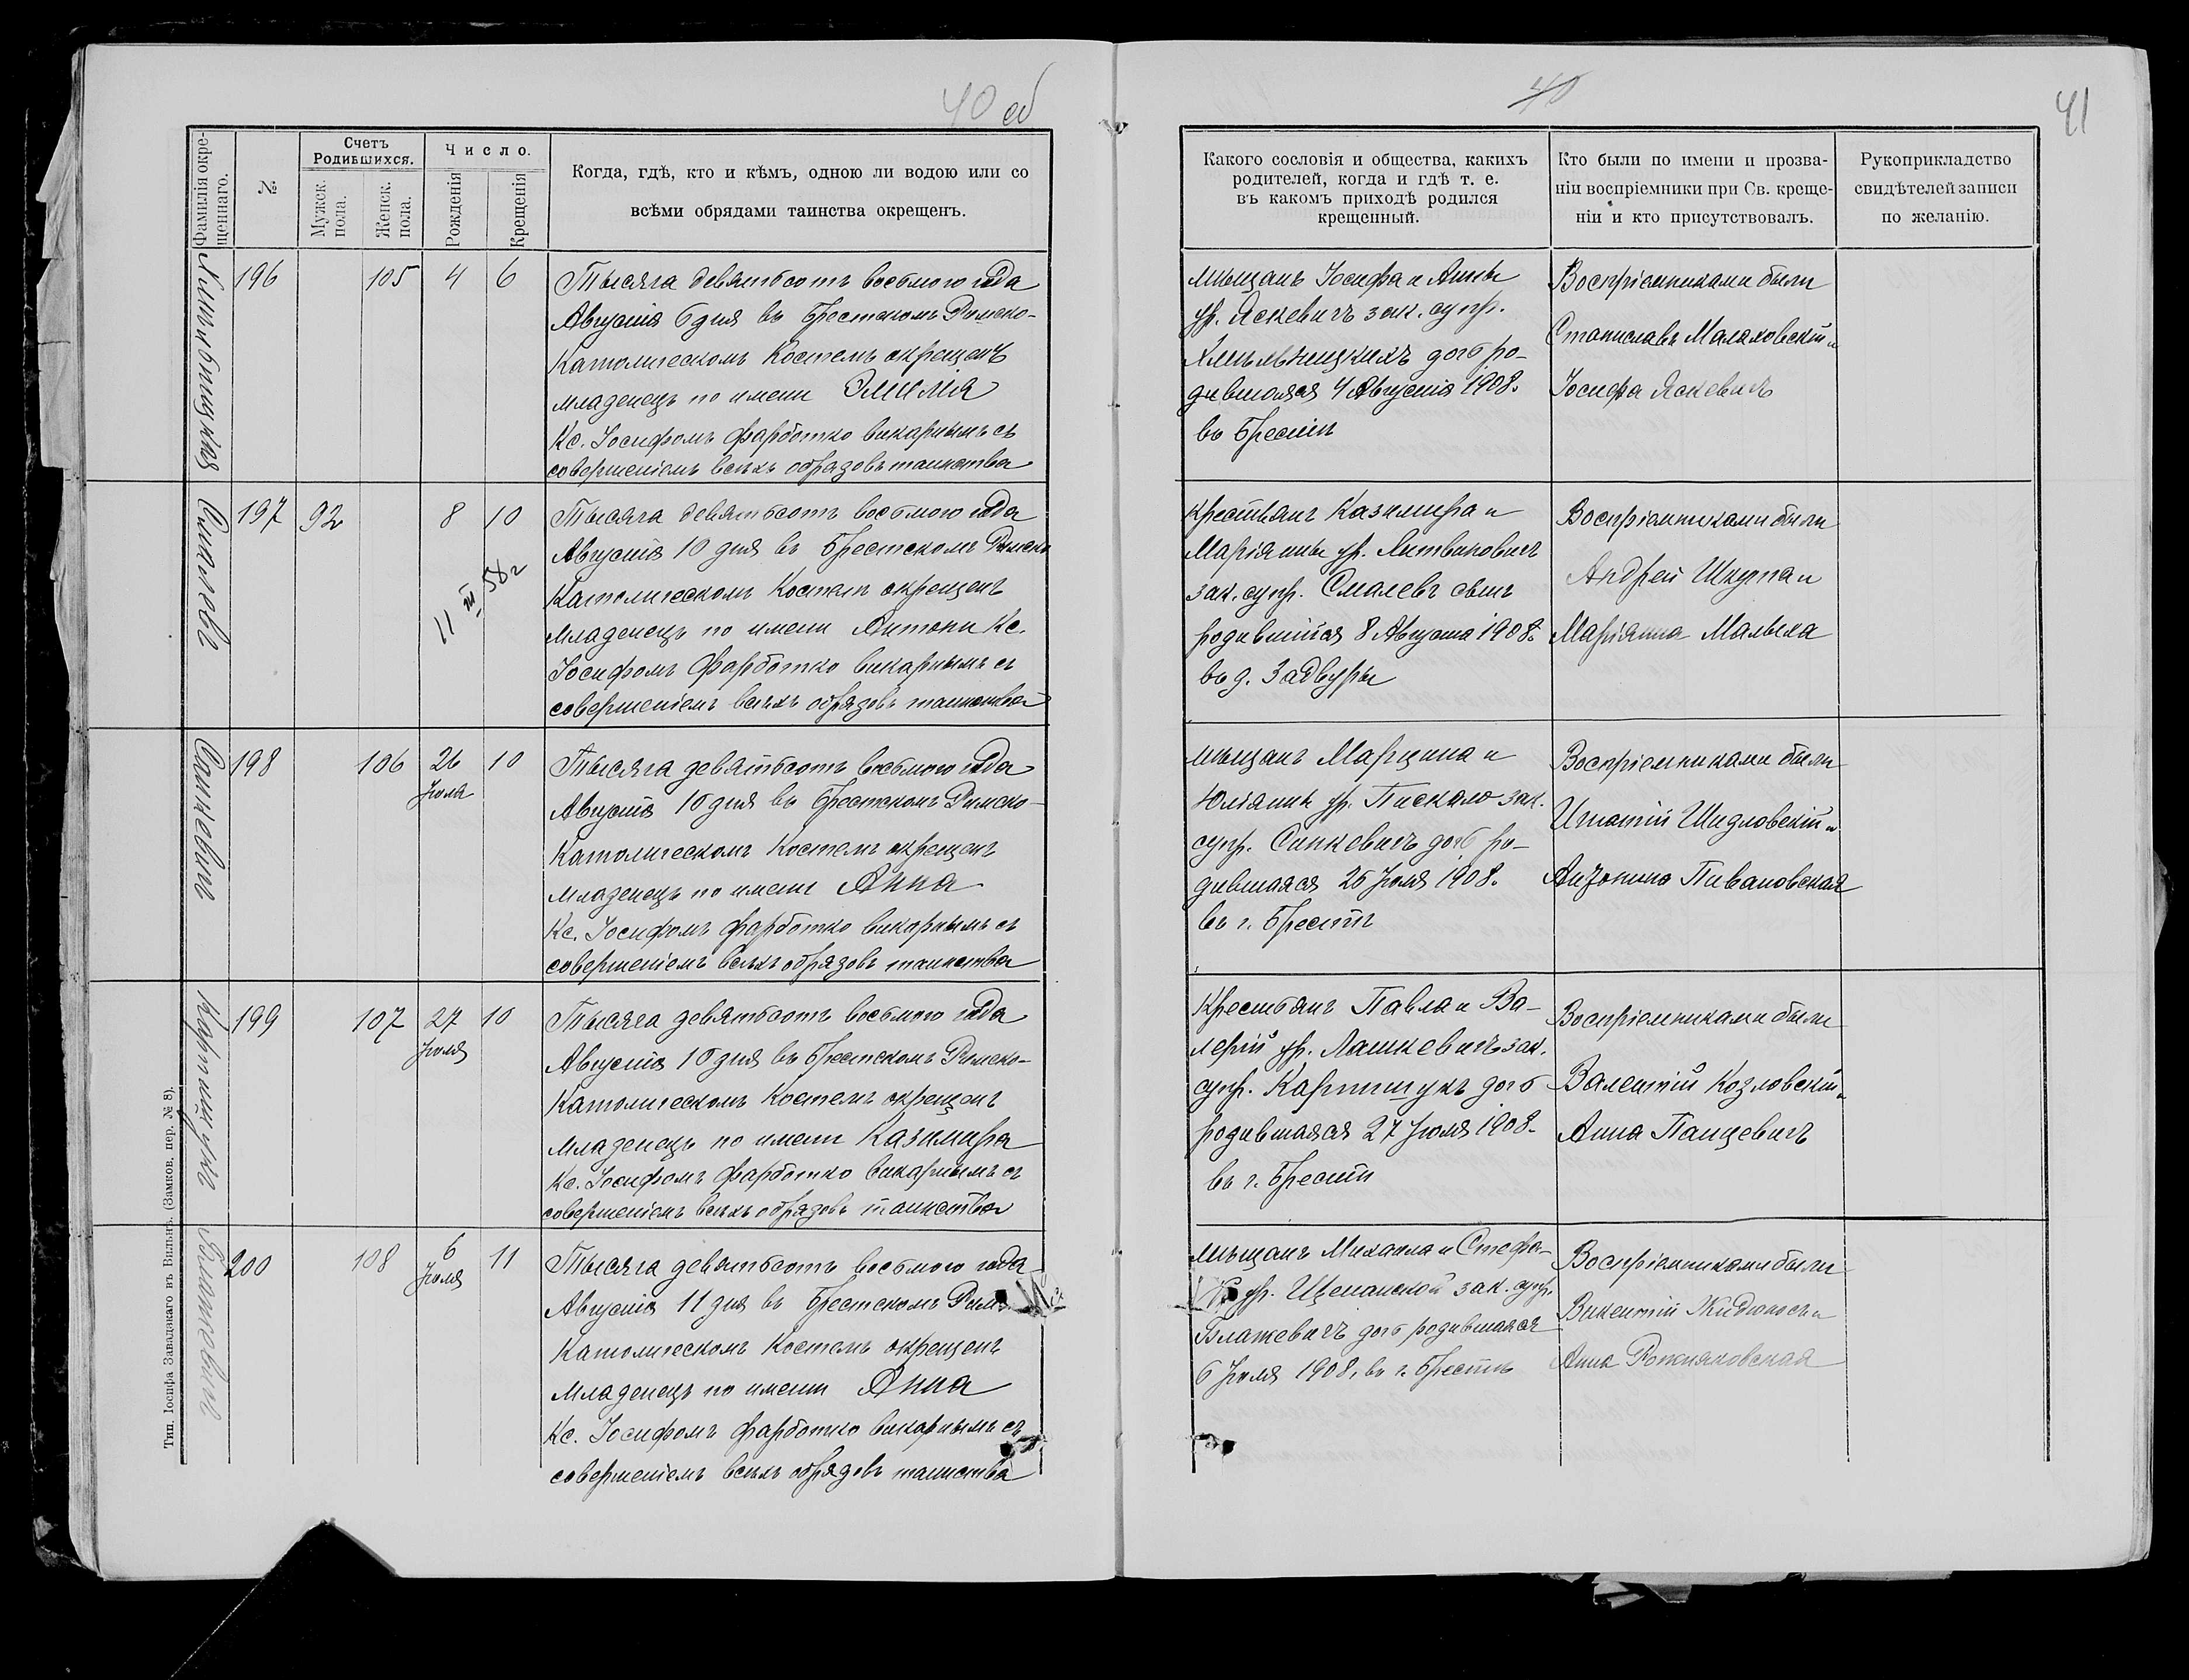 40 об
40
41
Фамилія окре-
щеннаго.
№
Счетъ
Родившихся.
Мужск.
пола.
Женск.
пола.
Число.
Рожденія
Крещенія
Когда, гдѣ, кто и кѣмъ, одною ли водою или со
всѣми обрядами таинства окрещенъ.
Какого сословія и общества, какихъ
родителей, когда и гдѣ т. е.
въ какомъ приходѣ родился
крещенный.
Кто были по имени и прозва-
ніи воспріемники при Св. креще-
ніи и кто присутствовалъ.
Рукоприкладство
свидѣтелей записи
по желанію.
196
105
4
6
Тысяча девятьсотъ восьмого года
Августа 6 дня въ Брестскомъ Римско-
Католическомъ Костелѣ окрещенъ
младенецъ по имени Эмилія
Кс. Іосифомъ Фарботко викарнымъ съ
совершеніемъ всѣхъ обрядовъ таинства
мѣщанъ Іосифа и Анны
ур. Яскевичъ зак. супр.
Хмѣльницкихъ дочь ро-
дившаяся 4 Августа 1908.
въ Брестѣ
Воспріемниками были
Станиславъ Малаховскій и
Іосифа Яскевичъ
Смалевъ
197
92
8
10
11 III 58 г
Тысяча девятьсотъ восьмого года
Августа 10 дня въ Брестскомъ Римско
Католическомъ Костелѣ окрещенъ
младенецъ по имени Антони Кс.
Іосифомъ Фарботко викарнымъ съ
совершеніемъ всѣхъ обрядовъ таинства
крестьянъ Казимира и
Маріанны ур. Литвиновичъ
зак. супр. Смалевъ сынъ
родившійся 8 Августа 1908.
въ д. Задворы
Воспріемниками были
Андрей Шкурпа и
Маріанна Малыха
Синкевичъ
198
106
26
Іюля
10
Тысяча девятьсотъ восьмого года
Августа 10 дня въ Брестскомъ Римско-
Католическомъ Костелѣ окрещенъ
младенецъ по имени Анна
Кс. Іосифомъ Фарботко викарнымъ съ
совершеніемъ всѣхъ обрядовъ таинства
мѣщанъ Марцина и
Юліанны ур. Пискало зак.
супр. Синкевичъ дочь ро-
дившаяся 26 Іюля 1908.
въ г. Брестѣ
Воспріемниками были
Игнатій Шидловскій и
Антонина Пивановская
Карпищукъ
199
107
27
Іюля
10
Тысяча девятьсотъ восьмого года
Августа 10 дня въ Брестскомъ Римско-
Католическомъ Костелѣ окрещенъ
младенецъ по имени Казимира
Кс. Іосифомъ Фарботко викарнымъ съ
совершеніемъ всѣхъ обрядовъ таинства
Крестьянъ Павла и Ва-
леріи ур. Лашкевичъ зак.
супр. Карпищукъ дочь
родившаяся 27 Іюля 1908.
въ г. Брестѣ
Воспріемниками были
Валентій Козловскій и
Анна Панцевичъ
Блажевичъ
200
108
6
Іюля
11
Тысяча девятьсотъ восьмого года
Августа 11 дня въ Брестскомъ Римско
Католическомъ Костелѣ окрещенъ
младенецъ по имени Анна
Кс. Іосифомъ Фарботко викарнымъ съ
совершеніемъ всѣхъ обрядовъ таинства
мѣщанъ Михаила и Стефа-
ур. Щепанской зак. супр.
Блажевичъ дочь родившаяся
6 Іюля 1908. въ г. Брестѣ
Воспріемниками были
Викентій и
Анна Рожняковская
Тип. Іосифа Завадзкаго въ Вильнѣ. (Замков. пер. № 8).